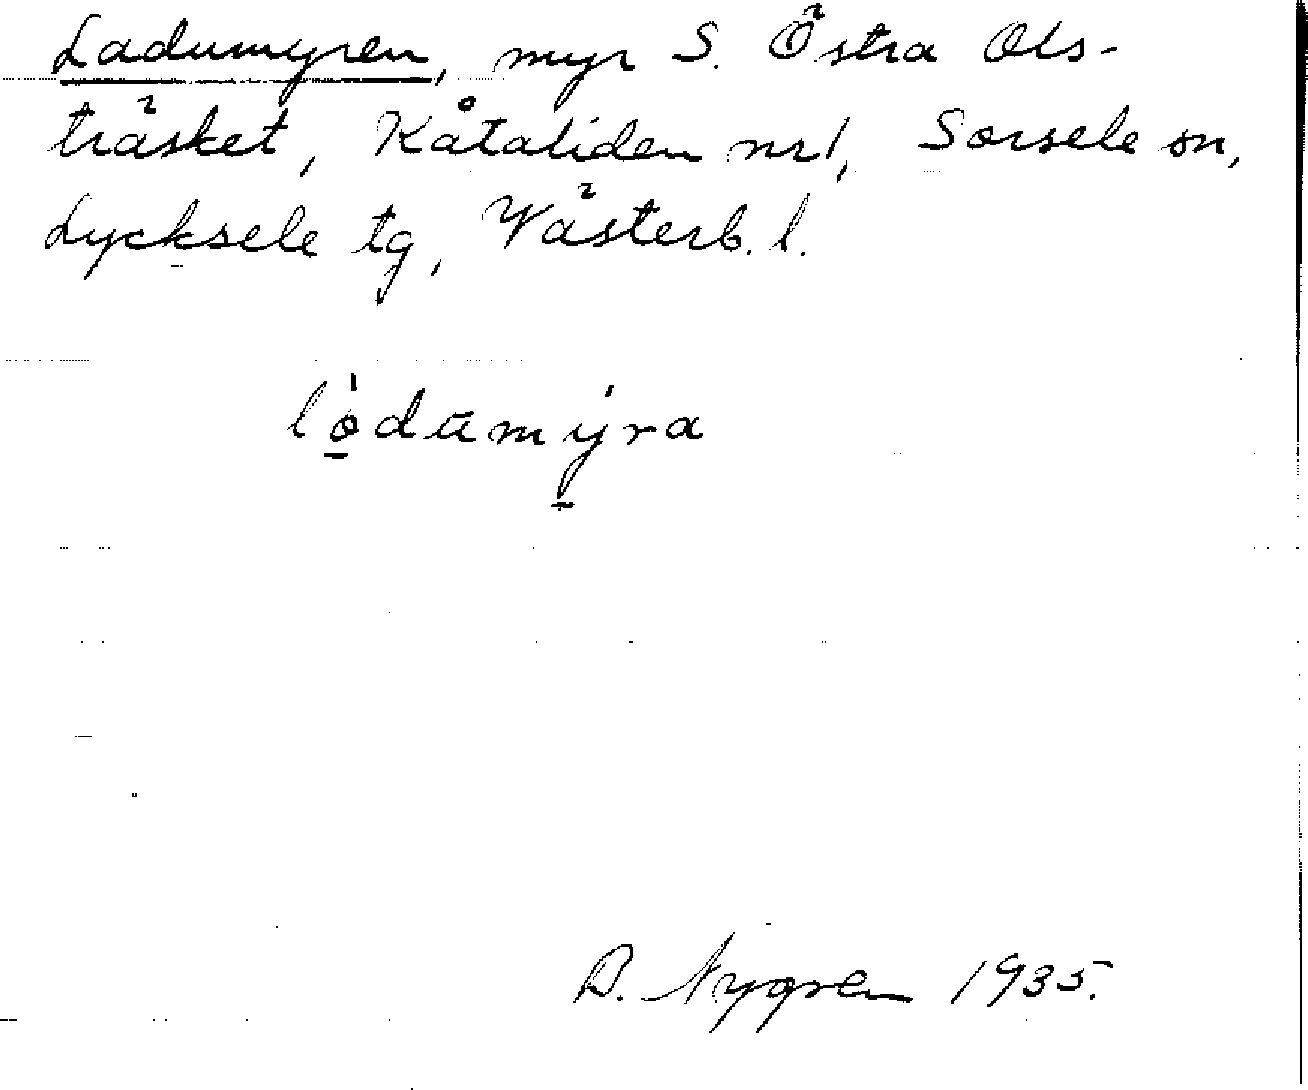 Ladumyren, myr S. Östra Ols-
träsket, Kåtaliden nr 1, Sorsele sn,
Lycksele tg, Västerb. l.
lo̠̍dūmy̠̍ra
D. Nygren 1935.